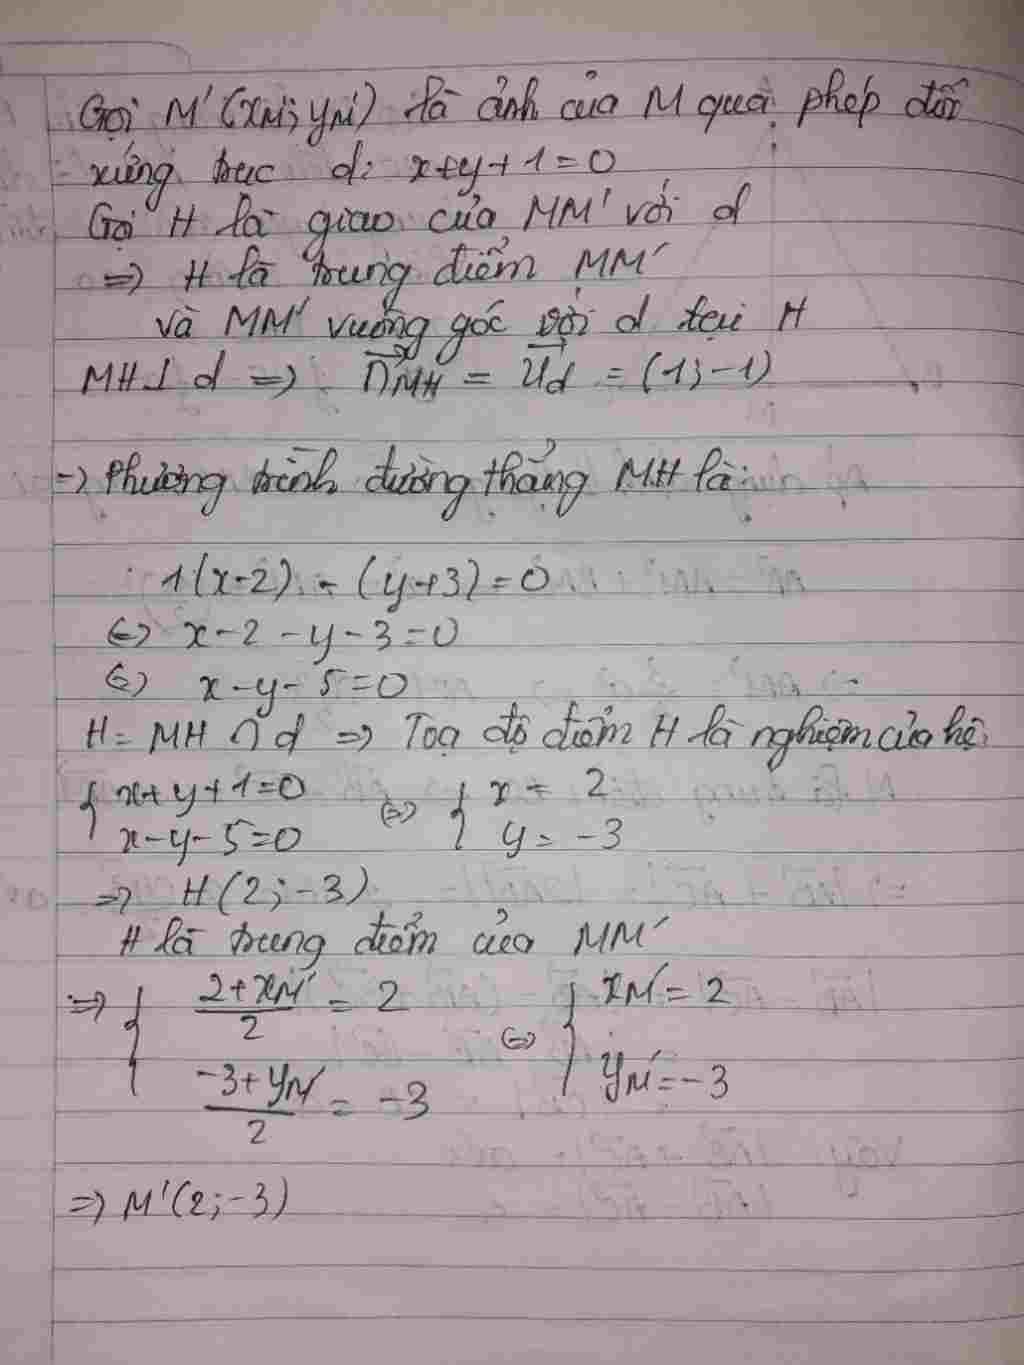 Gọi M'(xM'; yM') là ảnh của M qua phép đối
xứng trục d: x+y+1=0
Gọi H là giao của MM' với d
=> H là trung điểm MM'
và MM' vuông góc với d tại H
MH⊥d => n⃗MH = u⃗d = (1;-1)
=> Phương trình đường thẳng MH là:
1(x-2) - (y+3)=0
<=> x-2-y-3=0
<=> x-y-5=0
H = MH ∩ d => Toạ độ điểm H là nghiệm của hệ:
{ x+y+1=0 <=> { x = 2
x-y-5=0 y = -3
=> H(2;-3)
H là trung điểm của MM'
=> { (2+xM')/2 = 2 <=> { xM' = 2
(-3+yM')/2 = -3 yM' = -3
=> M'(2;-3)